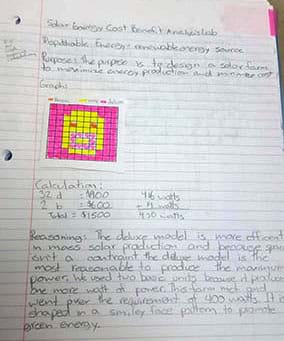 Solar Energy Cost Benefit Analysis Lab
Energy: renewable energy source
Purpose: the purpose is to design a solar farm
to maximize energy production and minimize cost
Graph:
Calculation:
32 d : $900 416 watts
2 b : $600 + 4 watts
Total = $1500 420 watts
Reasoning: The deluxe model is more efficent
in mass solar production and because space
isn't a contraint the deluxe model is the
most reasonable to produce the maximum
power. We used two basic units because it produces
one more watt of power. This farm met and
went over the requirement of 400 watts. It is
shaped in a smiley face pattern to promote
green energy.